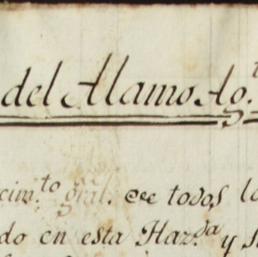 del Alamo Ag.to
cim.to gral. de todos lo
do en esta Haz.da y s